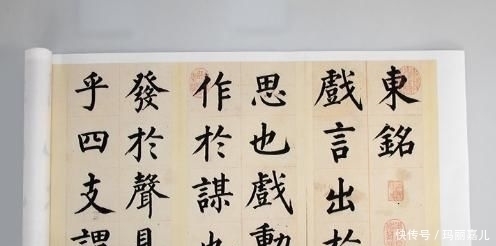 東銘
戲言出於
思也戲動
作於謀也
發於聲見
乎四支謂
快传号/玛丽嘉儿